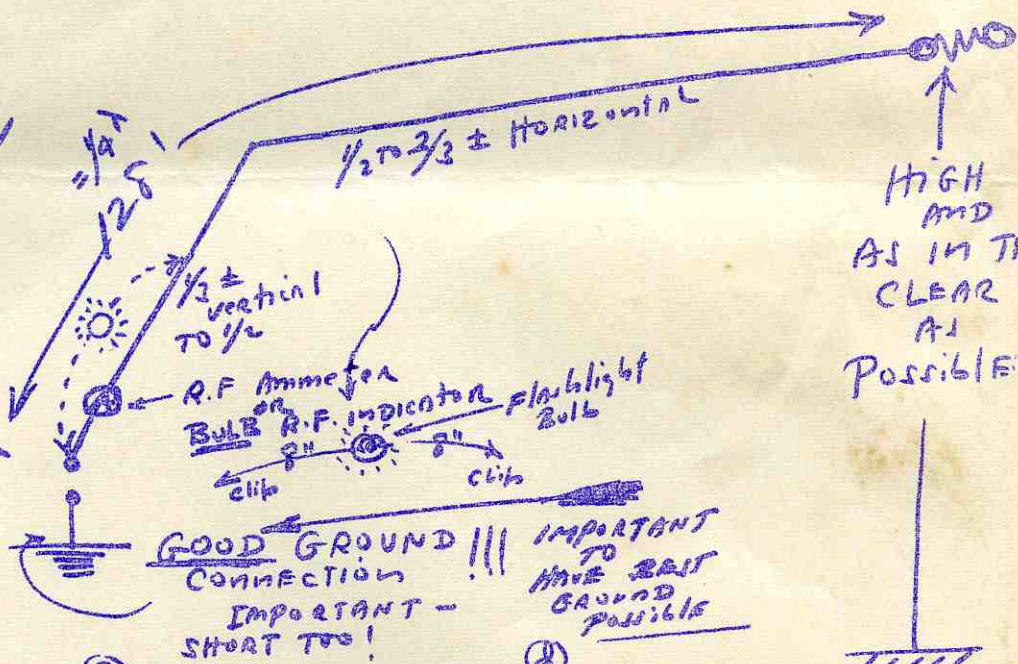 1/2 TO 2/3 ± HORIZONTAL
HIGH
AND
AS IN
CLEAR
AS
POSSIBLE
1/3 ±
vertical
TO 1/2
R.F Ammeter
OR
BULB R.F. INDICATOR
Flashlight
Bulb
8"
8"
clip
clip
GOOD GROUND !!!
CONNECTION
IMPORTANT -
SHORT TOO!
IMPORTANT
TO
HAVE BEST
GROUND
POSSIBLE